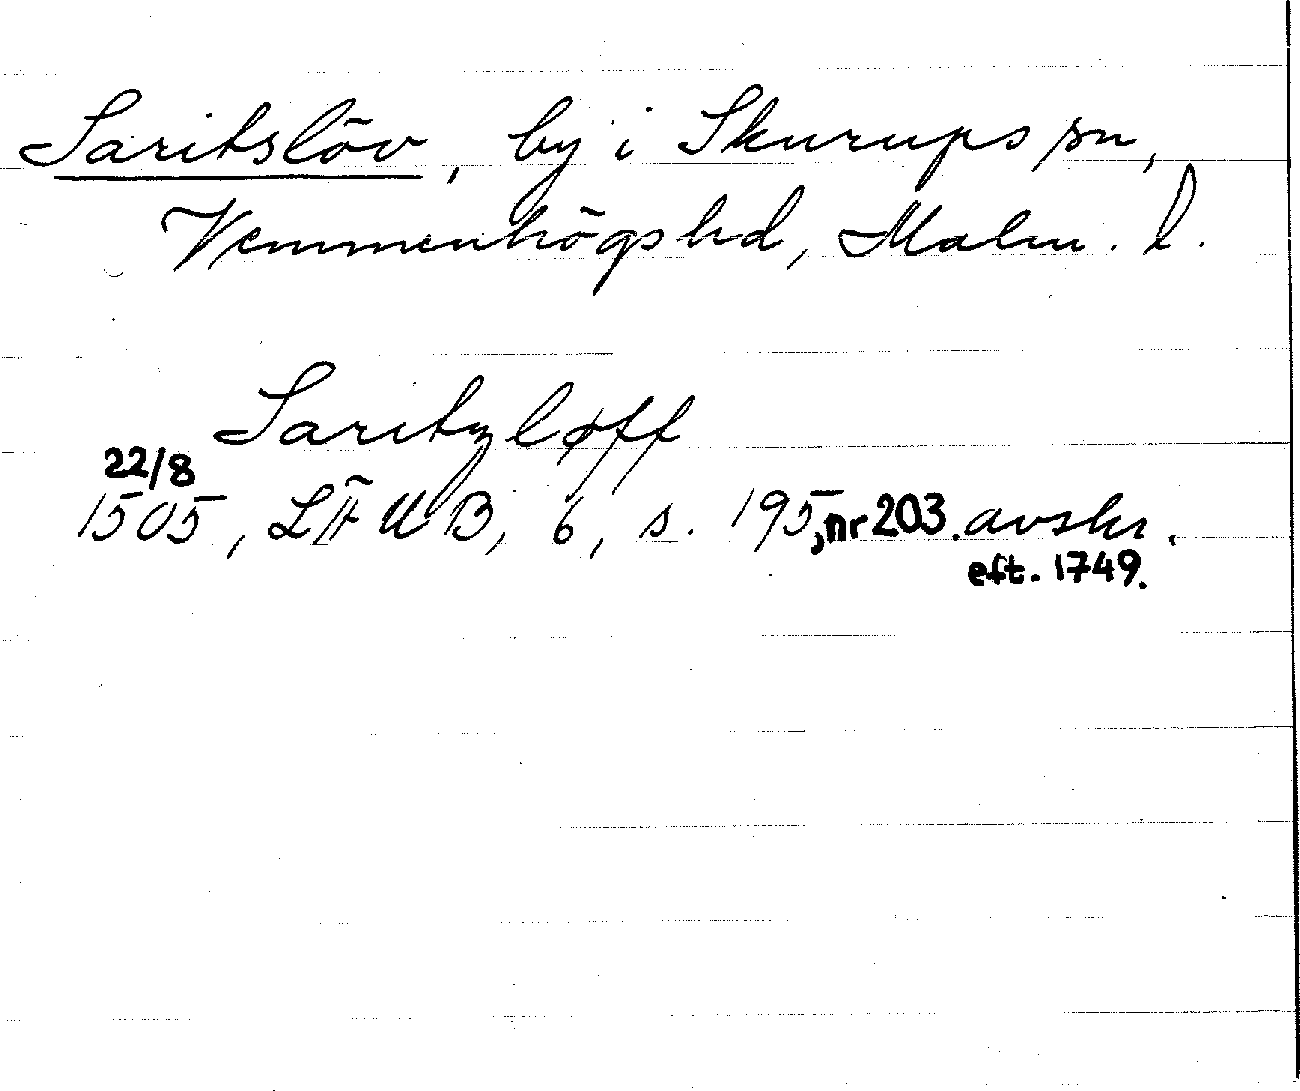 Saritslöv, by i Skurups sn,
Vemmenhögs hd, Malm. l.
Saritzløff
22/8
1505, LÄUB, 6, s. 195, nr 203. avskr.
eft. 1749.